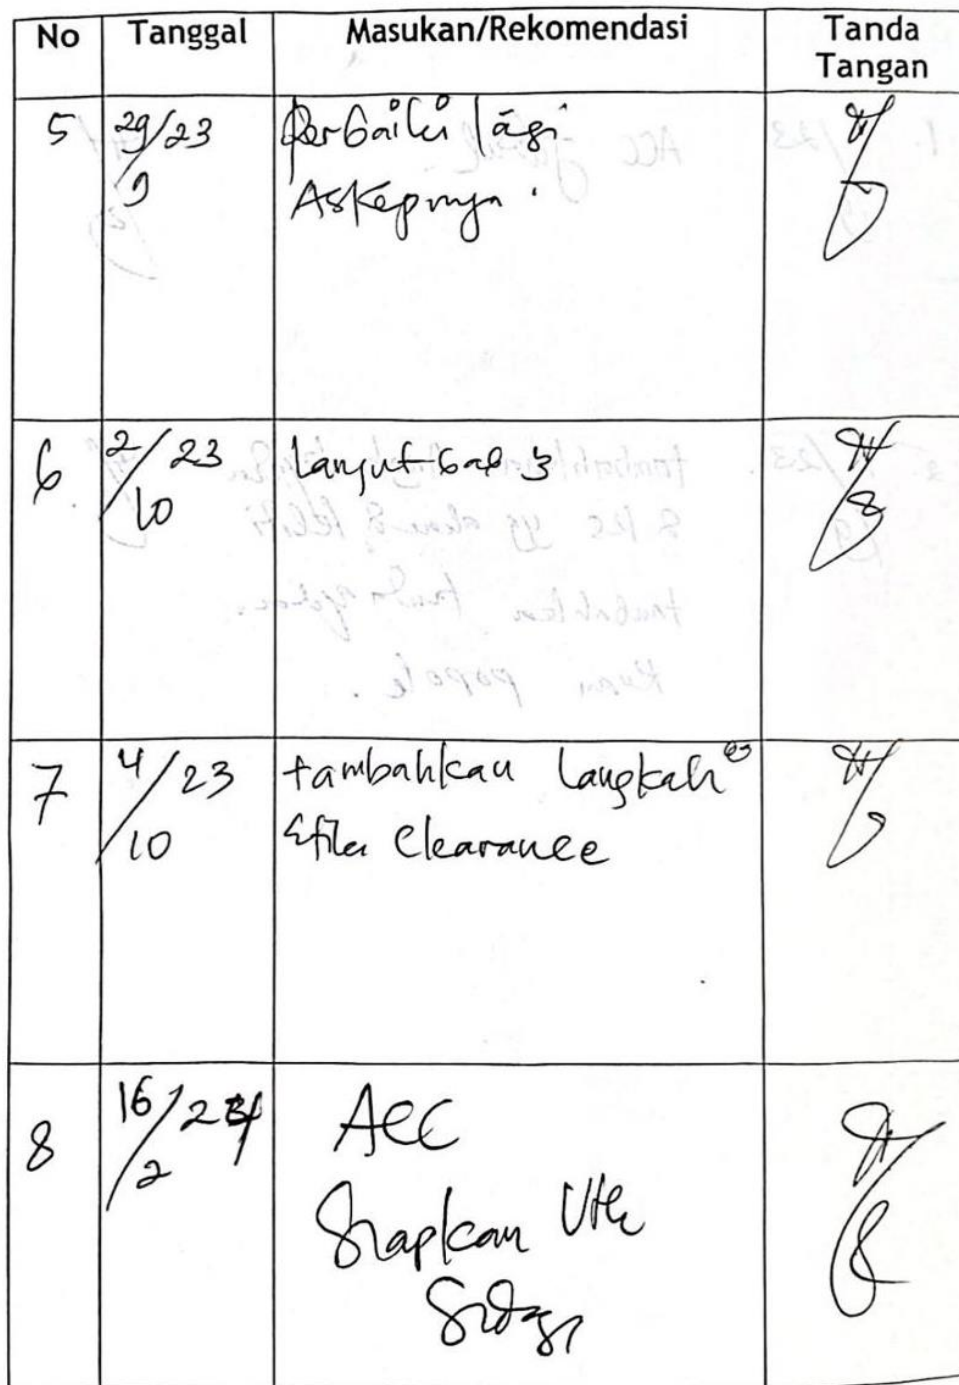 No Tanggal Masukan/Rekomendasi Tanda Tangan
5 29/9/23 Perbaiki lagi
Askepnya.
6 2/10/23 Lanjut bab 3
7 4/10/23 tambahkan langkah2
Etika Clearance
8 16/2/24 ACC
Siapkan Utk
Sidang